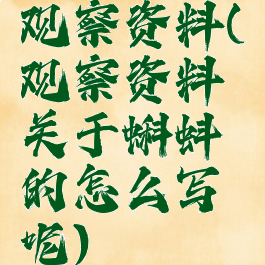 观察资料(
观察资料
关于蝌蚪
的怎么写
呢)